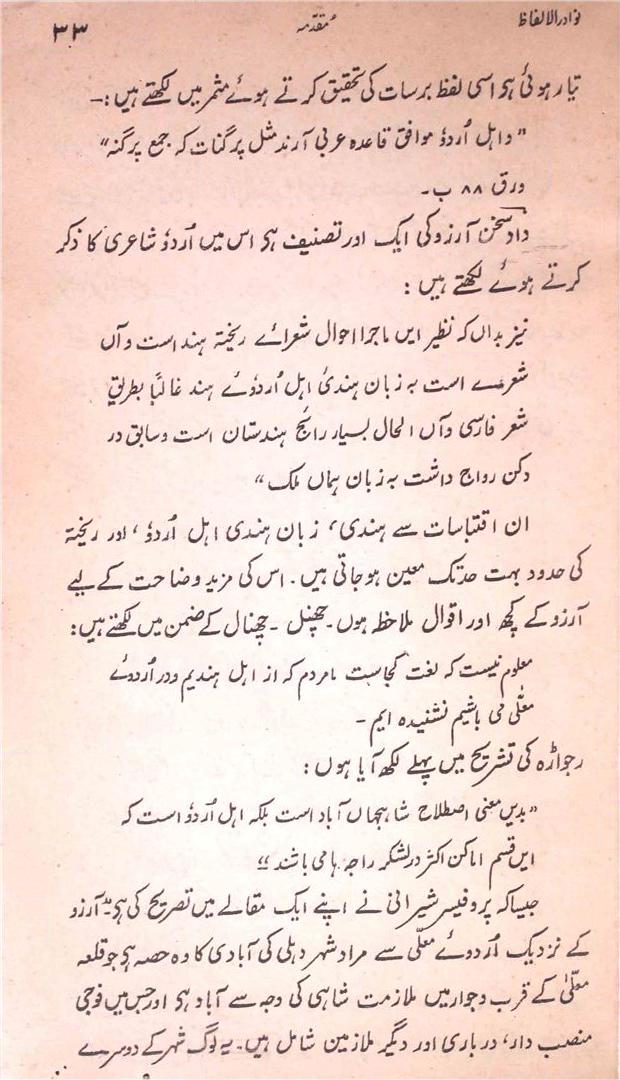 نوادر الالفاظ
مُقدّمہ
۳۳
تیار ہوئی ہی اسی لفظ برسات کی تحقیق کرتے ہوئے مثمر میں لکھتے ہیں :۔
” و اہل اُردوٗ موافق قاعدہ عربی آرند مثل پرگنات کہ جمع پرگنہ “
ورق ۸۸ ب ۔
دادِ سخن آرزو کی ایک اور تصنیف ہی اس میں اُردوٗ شاعری کا ذکر
کرتے ہوئے لکھتے ہیں :
نیز بداں کہ نظیر ایں ماجرا احوال شعرائے ریختہ ہند است و آں
شعرے است بہ زبان ہندیٔ اہل اُردوٗئے ہند غالباً بطریقِ
شعر فارسی و آں الحال بسیار رائج ہندستان است و سابق در
دکن رواج داشت بہ زبان ہماں ملک “
ان اقتباسات سے ہندی، زبان ہندی اہل اُردوٗ، اور ریختہ
کی حدود بہت حد تک معین ہو جاتی ہیں ۔ اس کی مزید وضاحت کے لیے
آرزو کے کچھ اور اقوال ملاحظہ ہوں ۔ چھنل ۔ چھنال کے ضمن میں لکھتے ہیں :
معلوم نیست کہ لغت کجاست ما مردم کہ از اہل ہندیم و در اُردوئے
معلّٰی می باشیم نشنیدہ ایم ۔
رجواڑہ کی تشریح میں پہلے لکھ آیا ہوں :
” بدیں معنی اصطلاح شاہجہاں آباد است بلکہ اہل اُردوٗ است کہ
ایں قسم اماکن اکثر در لشکر راجہ ہا می باشند “
جیسا کہ پروفیسر شیرانی نے اپنے ایک مقالے میں تصریح کی ہی ۔ آرزو
کے نزدیک اُردوئے معلّٰی سے مراد شہر دہلی کی آبادی کا وہ حصہ ہی جو قلعہ
معلّٰی کے قرب و جوار میں ملازمت شاہی کی وجہ سے آباد ہی اور جس میں فوجی
منصب دار، درباری اور دیگر ملازمین شامل ہیں ۔ یہ لوگ شہر کے دوسرے